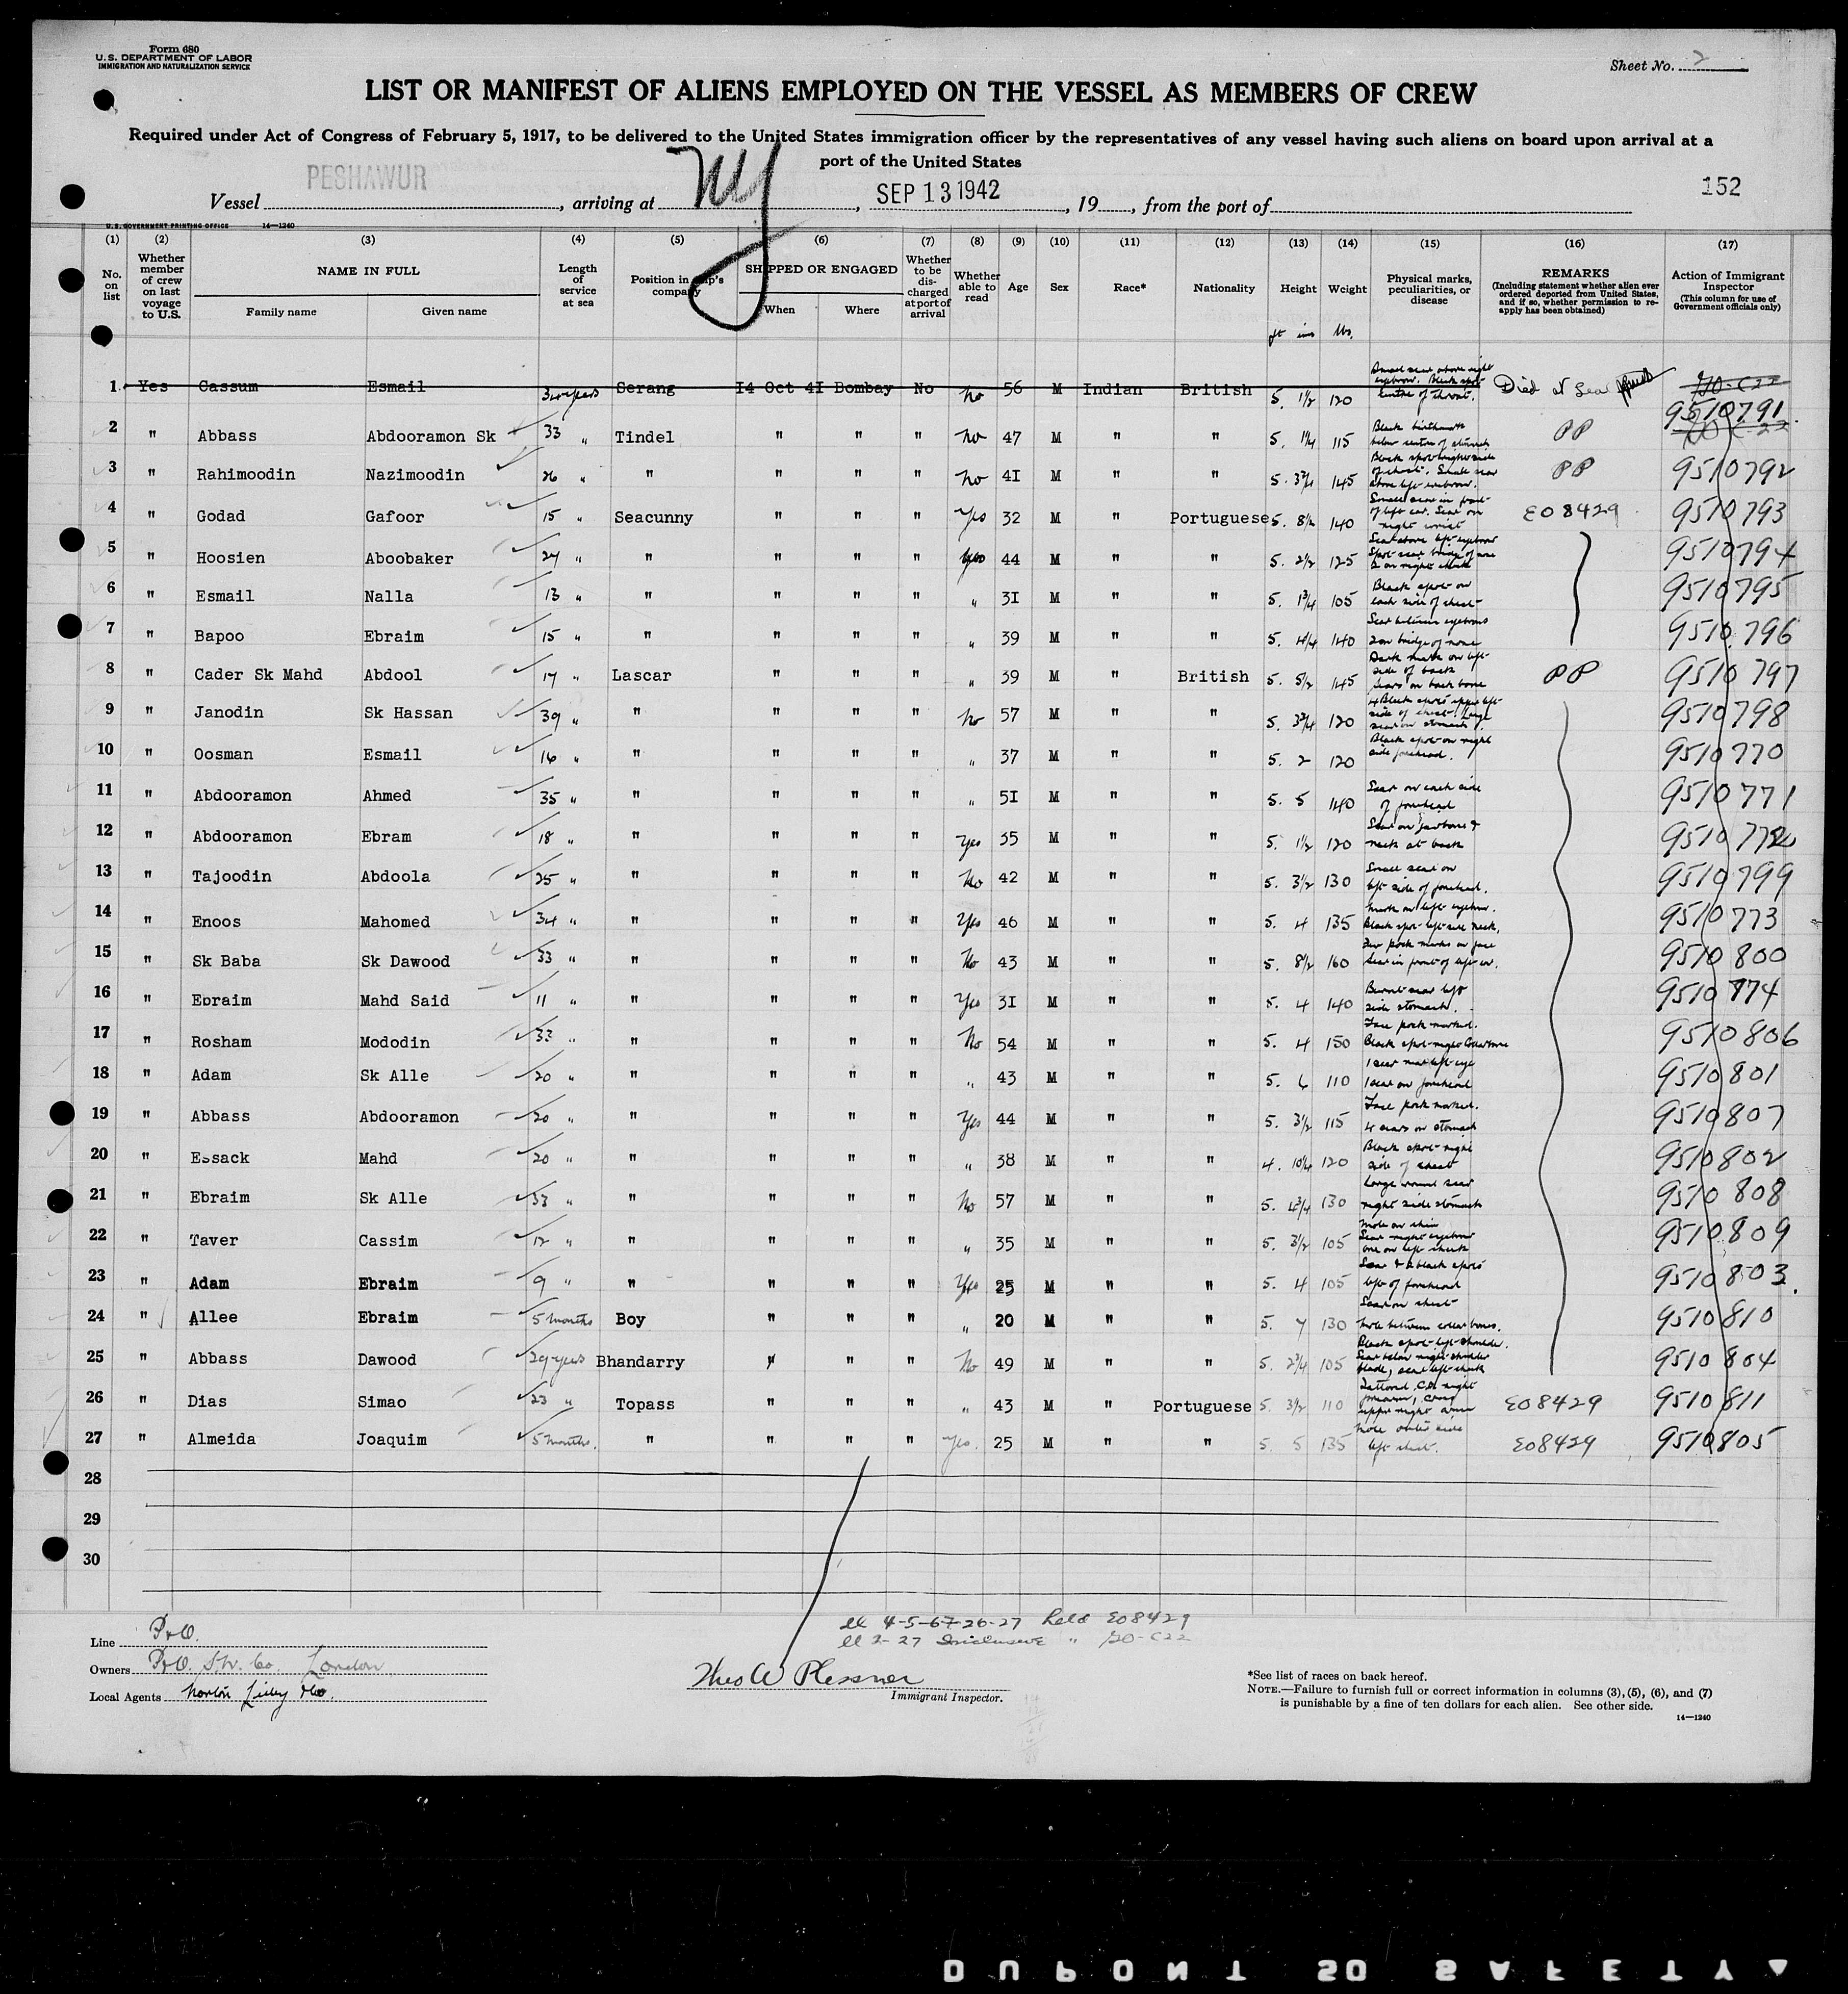 Form 680
U.S. DEPARTMENT OF LABOR
IMMIGRATION AND NATURALIZATION SERVICE
Sheet No. 2
LIST OR MANIFEST OF ALIENS EMPLOYED ON THE VESSEL AS MEMBERS OF CREW
Required under Act of Congress of February 5, 1917, to be delivered to the United States immigration officer by the representatives of any vessel having such aliens on board upon arrival at a
port of the United States
152
Vessel PESHAWUR, arriving at NY, SEP 13 1942, 19, from the port of
U.S. GOVERNMENT PRINTING OFFICE 14—1240
(1) (2) (3) (4) (5) (6) (7) (8) (9) (10) (11) (12) (13) (14) (15) (16) (17)
No. on list
Whether member of crew on last voyage to U.S.
NAME IN FULL
Family name Given name
Length of service at sea
Position in ship's company
SHIPPED OR ENGAGED
When Where
Whether to be discharged at port of arrival
Whether able to read
Age
Sex
Race*
Nationality
Height
Weight
Physical marks, peculiarities, or disease
REMARKS
(Including statement whether alien ever ordered deported from United States, and if so, whether permission to reapply has been obtained)
Action of Immigrant Inspector
(This column for use of Government officials only)
ft ins lbs.
1 Yes Cassum Esmail Serang I4 Oct 4I Bombay No No 56 M Indian British 5. 1½ 120 Small scar above right eyebrow. Black spot centre of throat. Died at Sea
2 " Abbass Abdooramon Sk 33 " Tindel " " " No 47 M " " 5. 1¼ 115 Black birthmark below centre of stomach PP 9510791
3 " Rahimoodin Nazimoodin 26 " " " " " No 4I M " " 5. 3¾ 145 PP 9510792
4 " Godad Gafoor 15 " Seacunny " " " Yes 32 M " Portuguese 5. 8½ 140 Small scar in front of left ear. Scar on right wrist E08429 9510793
5 " Hoosien Aboobaker 24 " " " " " Yes 44 M " " 5. 2½ 125 Scar above left eyebrow 9510794
6 " Esmail Nalla 13 " " " " " " 3I M " " 5. 1¾ 105 Black spot on each side of chest 9510795
7 " Bapoo Ebraim 15 " " " " " " 39 M " " 5. 4¼ 140 Scar between eyebrows 2 on bridge of nose 9510796
8 " Cader Sk Mahd Abdool 17 " Lascar " " " " 39 M " British 5. 5½ 145 Dark mark on left side of back PP 9510797
9 " Janodin Sk Hassan 39 " " " " " No 57 M " " 5. 3¾ 120 9510798
10 " Oosman Esmail 16 " " " " " " 37 M " " 5. 2 120 Black spot on right side forehead. 9510770
11 " Abdooramon Ahmed 35 " " " " " " 5I M " " 5. 5 140 Scar on each side of forehead 9510771
12 " Abdooramon Ebram 18 " " " " " Yes 35 M " " 5. 1½ 120 Scar on jawbone & neck at back 9510772
13 " Tajoodin Abdoola 25 " " " " " No 42 M " " 5. 3½ 130 Small scar on left side of forehead. 9510799
14 " Enoos Mahomed 34 " " " " " Yes 46 M " " 5. 4 135 Mark on left eyebrow. Black spot left side neck. 9510773
15 " Sk Baba Sk Dawood 33 " " " " " No 43 M " " 5. 8½ 160 Few pock marks on face Scar in front of left ear. 9510800
16 " Ebraim Mahd Said 11 " " " " " Yes 3I M " " 5. 4 140 Burnt scar left side stomach. 9510774
17 " Rosham Mododin 33 " " " " " No 54 M " " 5. 4 150 Face pock marked. Black spot right Collarbone 9510806
18 " Adam Sk Alle 20 " " " " " " 43 M " " 5. 110 1 scar near left eye 1 scar on forehead 9510801
19 " Abbass Abdooramon 20 " " " " " Yes 44 M " " 5. 3½ 115 Face pock marked. 4 scars on stomach 9510807
20 " Essack Mahd 20 " " " " " " 38 M " " 4. 10¼ 120 Black spot right side of chest 9510802
21 " Ebraim Sk Alle 33 " " " " " No 57 M " " 5. 4¾ 130 Large wound scar right side stomach 9510808
22 " Taver Cassim 12 " " " " " " 35 M " " 5. 3½ 105 Mole on chin Scar right eyebrow one on left cheek 9510809
23 " Adam Ebraim 9 " " " " " Yes 25 M " " 5. 4 105 Scar & 2 black spots left of forehead 9510803.
24 " Allee Ebraim 5 months Boy " " " " 20 M " " 5. 7 130 Scar on chest Mole between collar bones. 9510810
25 " Abbass Dawood 29 years Bhandarry " " " No 49 M " " 5. 2¾ 105 Black spot left shoulder. Scar below right shoulder blade, scar left cheek 9510804
26 " Dias Simao 23 " Topass " " " " 43 M " Portuguese 5. 3½ 110 E08429 9510811
27 " Almeida Joaquim 5 months. " " " " Yes. 25 M " " 5. 5 135 Mole outer side left chest. E08429 9510805
28
29
30
ll 4-5-6-7-26-27 Held E08429
ll 2-27 Inclusive " GO-C22
Line P&O.
Owners P&O. S.N. Co. London
Local Agents Norton Lilly & Co.
Theo W Plessner
Immigrant Inspector.
*See list of races on back hereof.
NOTE.—Failure to furnish full or correct information in columns (3), (5), (6), and (7)
is punishable by a fine of ten dollars for each alien. See other side.
14—1240
DUPONT SO SAFETY